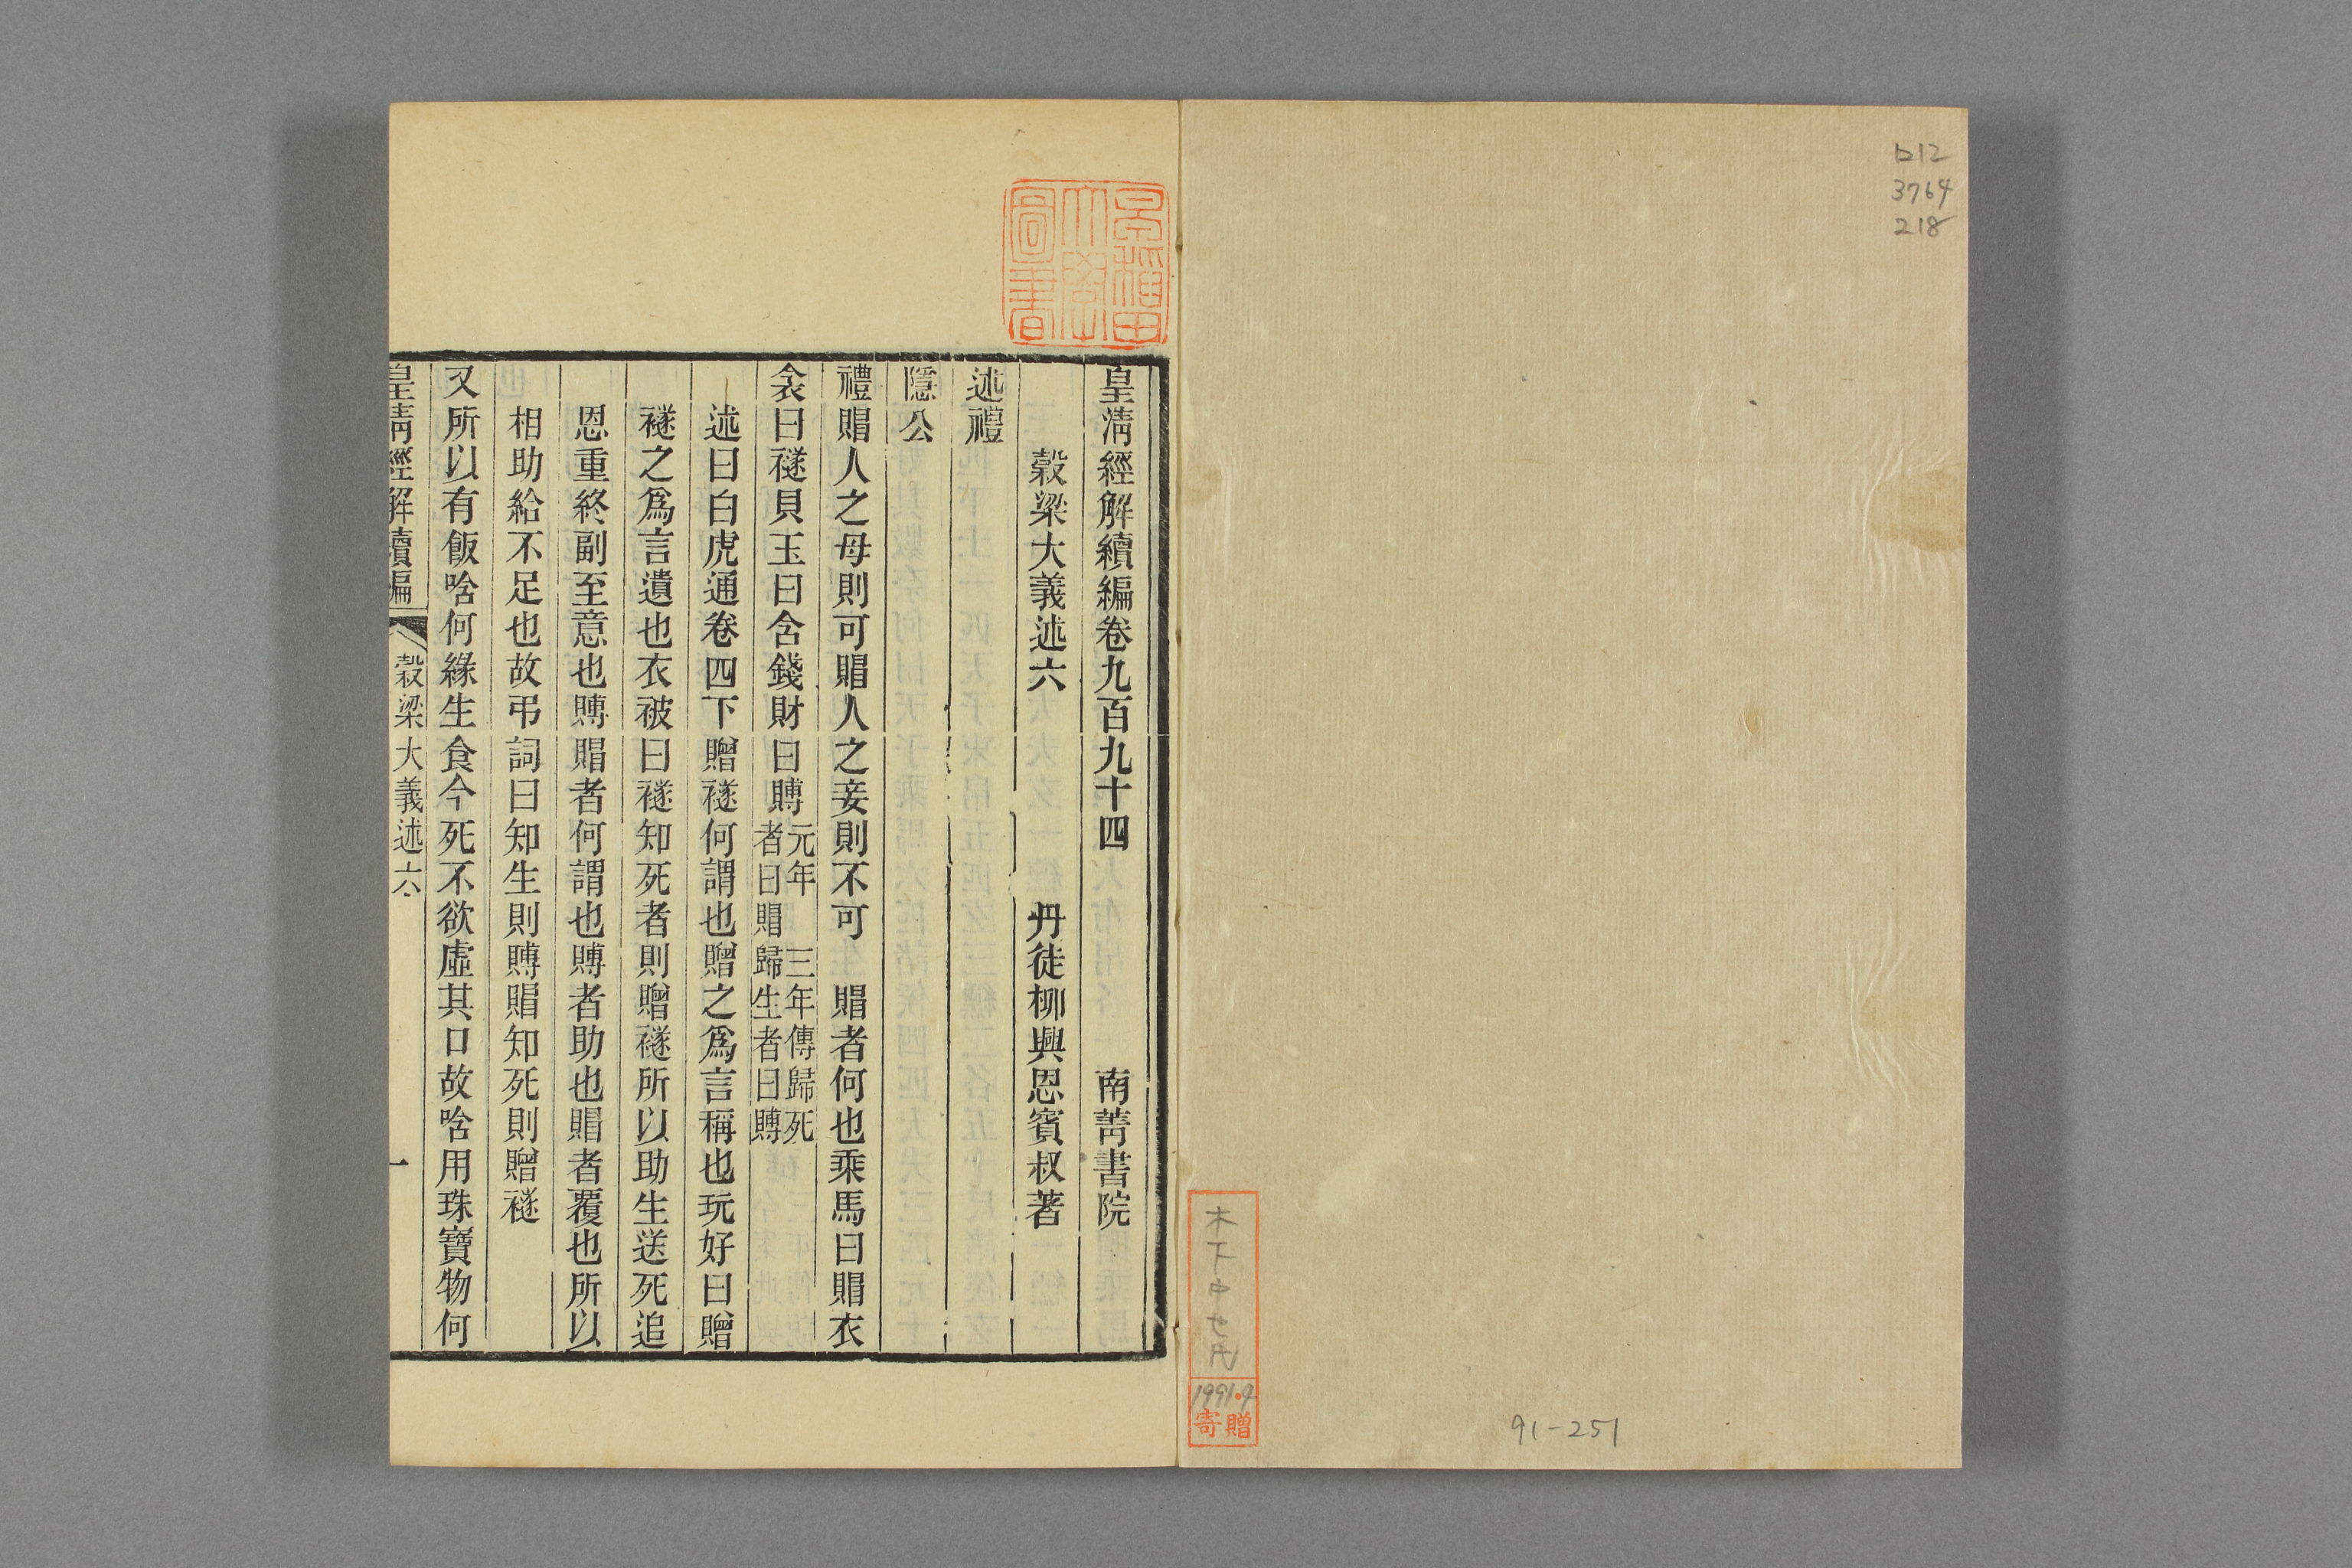 ロ12
3764
218
木下中七氏
1991.4
寄贈
91-251
早稲田大学図書
皇清經解續編卷九百九十四 南菁書院
穀梁大義述六 丹徒柳興恩賓叔著
述禮
隱公
禮賵人之母則可賵人之妾則不可 賵者何也乘馬曰賵衣
衾曰襚貝玉曰含錢財曰賻元年 三年傳歸死者曰賵歸生者曰賻
述曰白虎通卷四下贈襚何謂也贈之爲言稱也玩好曰贈
襚之爲言遺也衣被曰襚知死者則贈襚所以助生送死追
恩重終副至意也賻賵者何謂也賻者助也賵者覆也所以
相助給不足也故弔詞曰知生則賻賵知死則贈襚
又所以有飯唅何緣生食今死不欲虛其口故唅用珠寶物何
皇清經解續編 穀梁大義述六 一